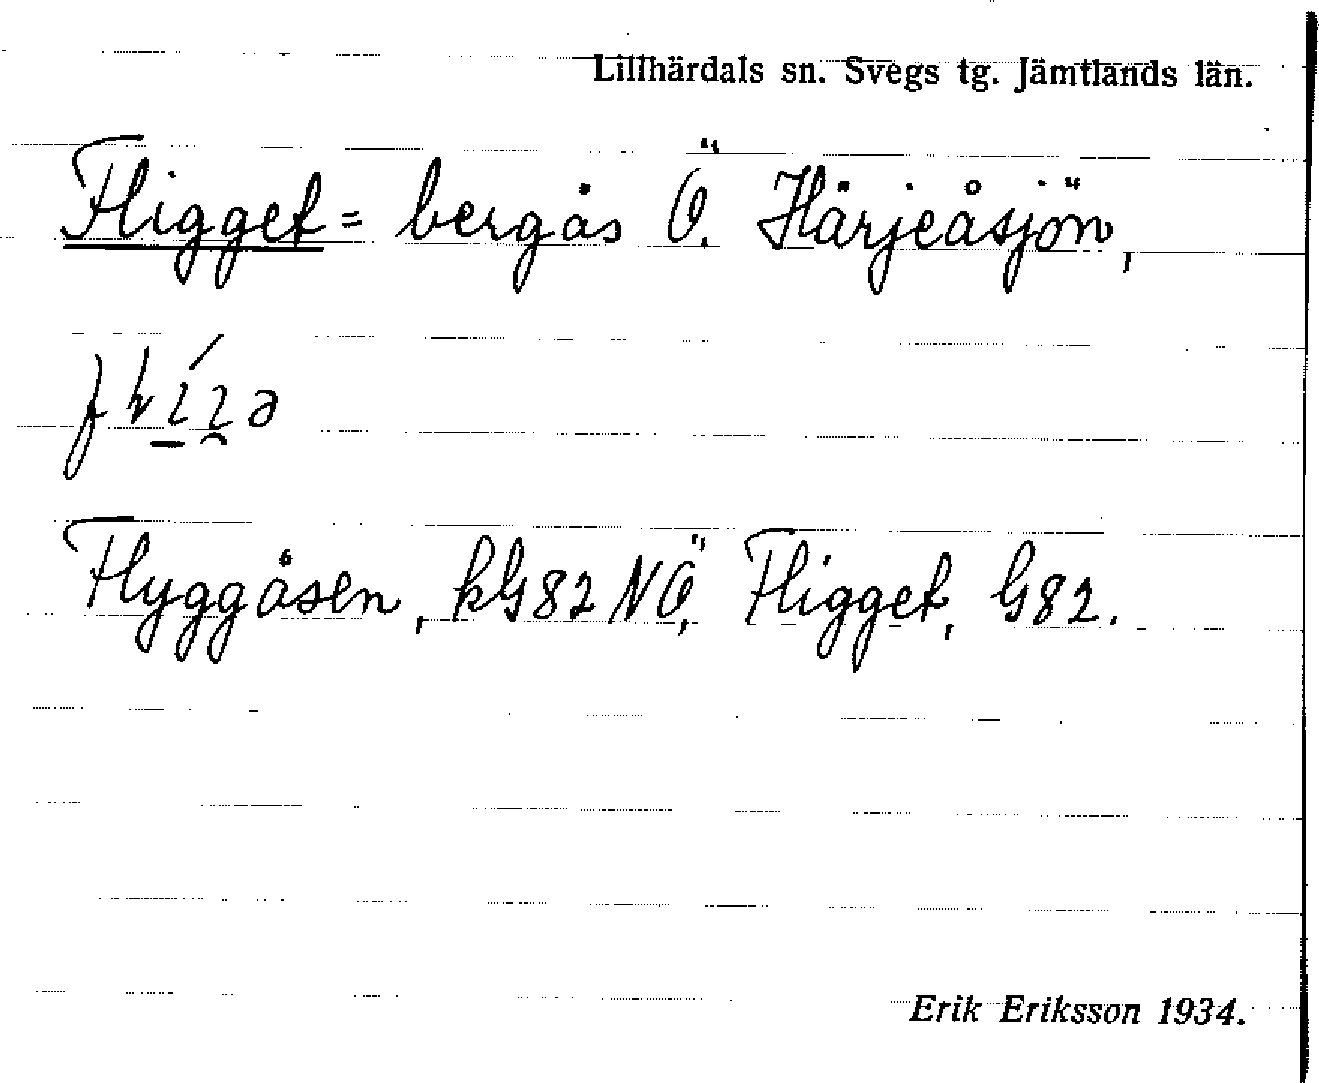 Lillhärdals sn. Svegs tg. Jämtlands län.
Fligget = bergås Ö. Härjeåsjön,
Flyggåsen, kG82 NÖ, Fligget, G82.
Erik Eriksson 1934.